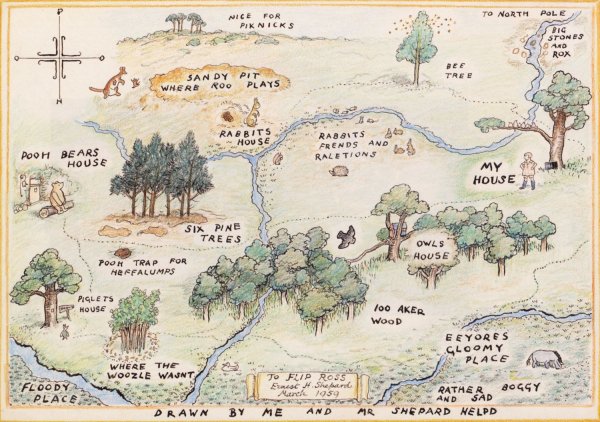 NICE FOR
PIKNICKS
TO NORTH POLE
BIG
STONES
AND
ROX
BEE
TREE
SANDY PIT
WHERE ROO PLAYS
P
H
RABBITS
HOUSE
RABBITS
FRENDS AND
RALETIONS
POOH BEARS
HOUSE
MY
HOUSE
SIX PINE
TREES
OWLS
HOUSE
POOH TRAP FOR
HEFFALUMPS
PIGLETS
HOUSE
100 AKER
WOOD
EEYORES
GLOOMY
PLACE
WHERE THE
WOOZLE WASNT
FLOODY
PLACE
To FLIP ROSS
Ernest H. Shepard
March 1959
RATHER BOGGY
AND SAD
DRAWN BY ME AND MR SHEPARD HELPD